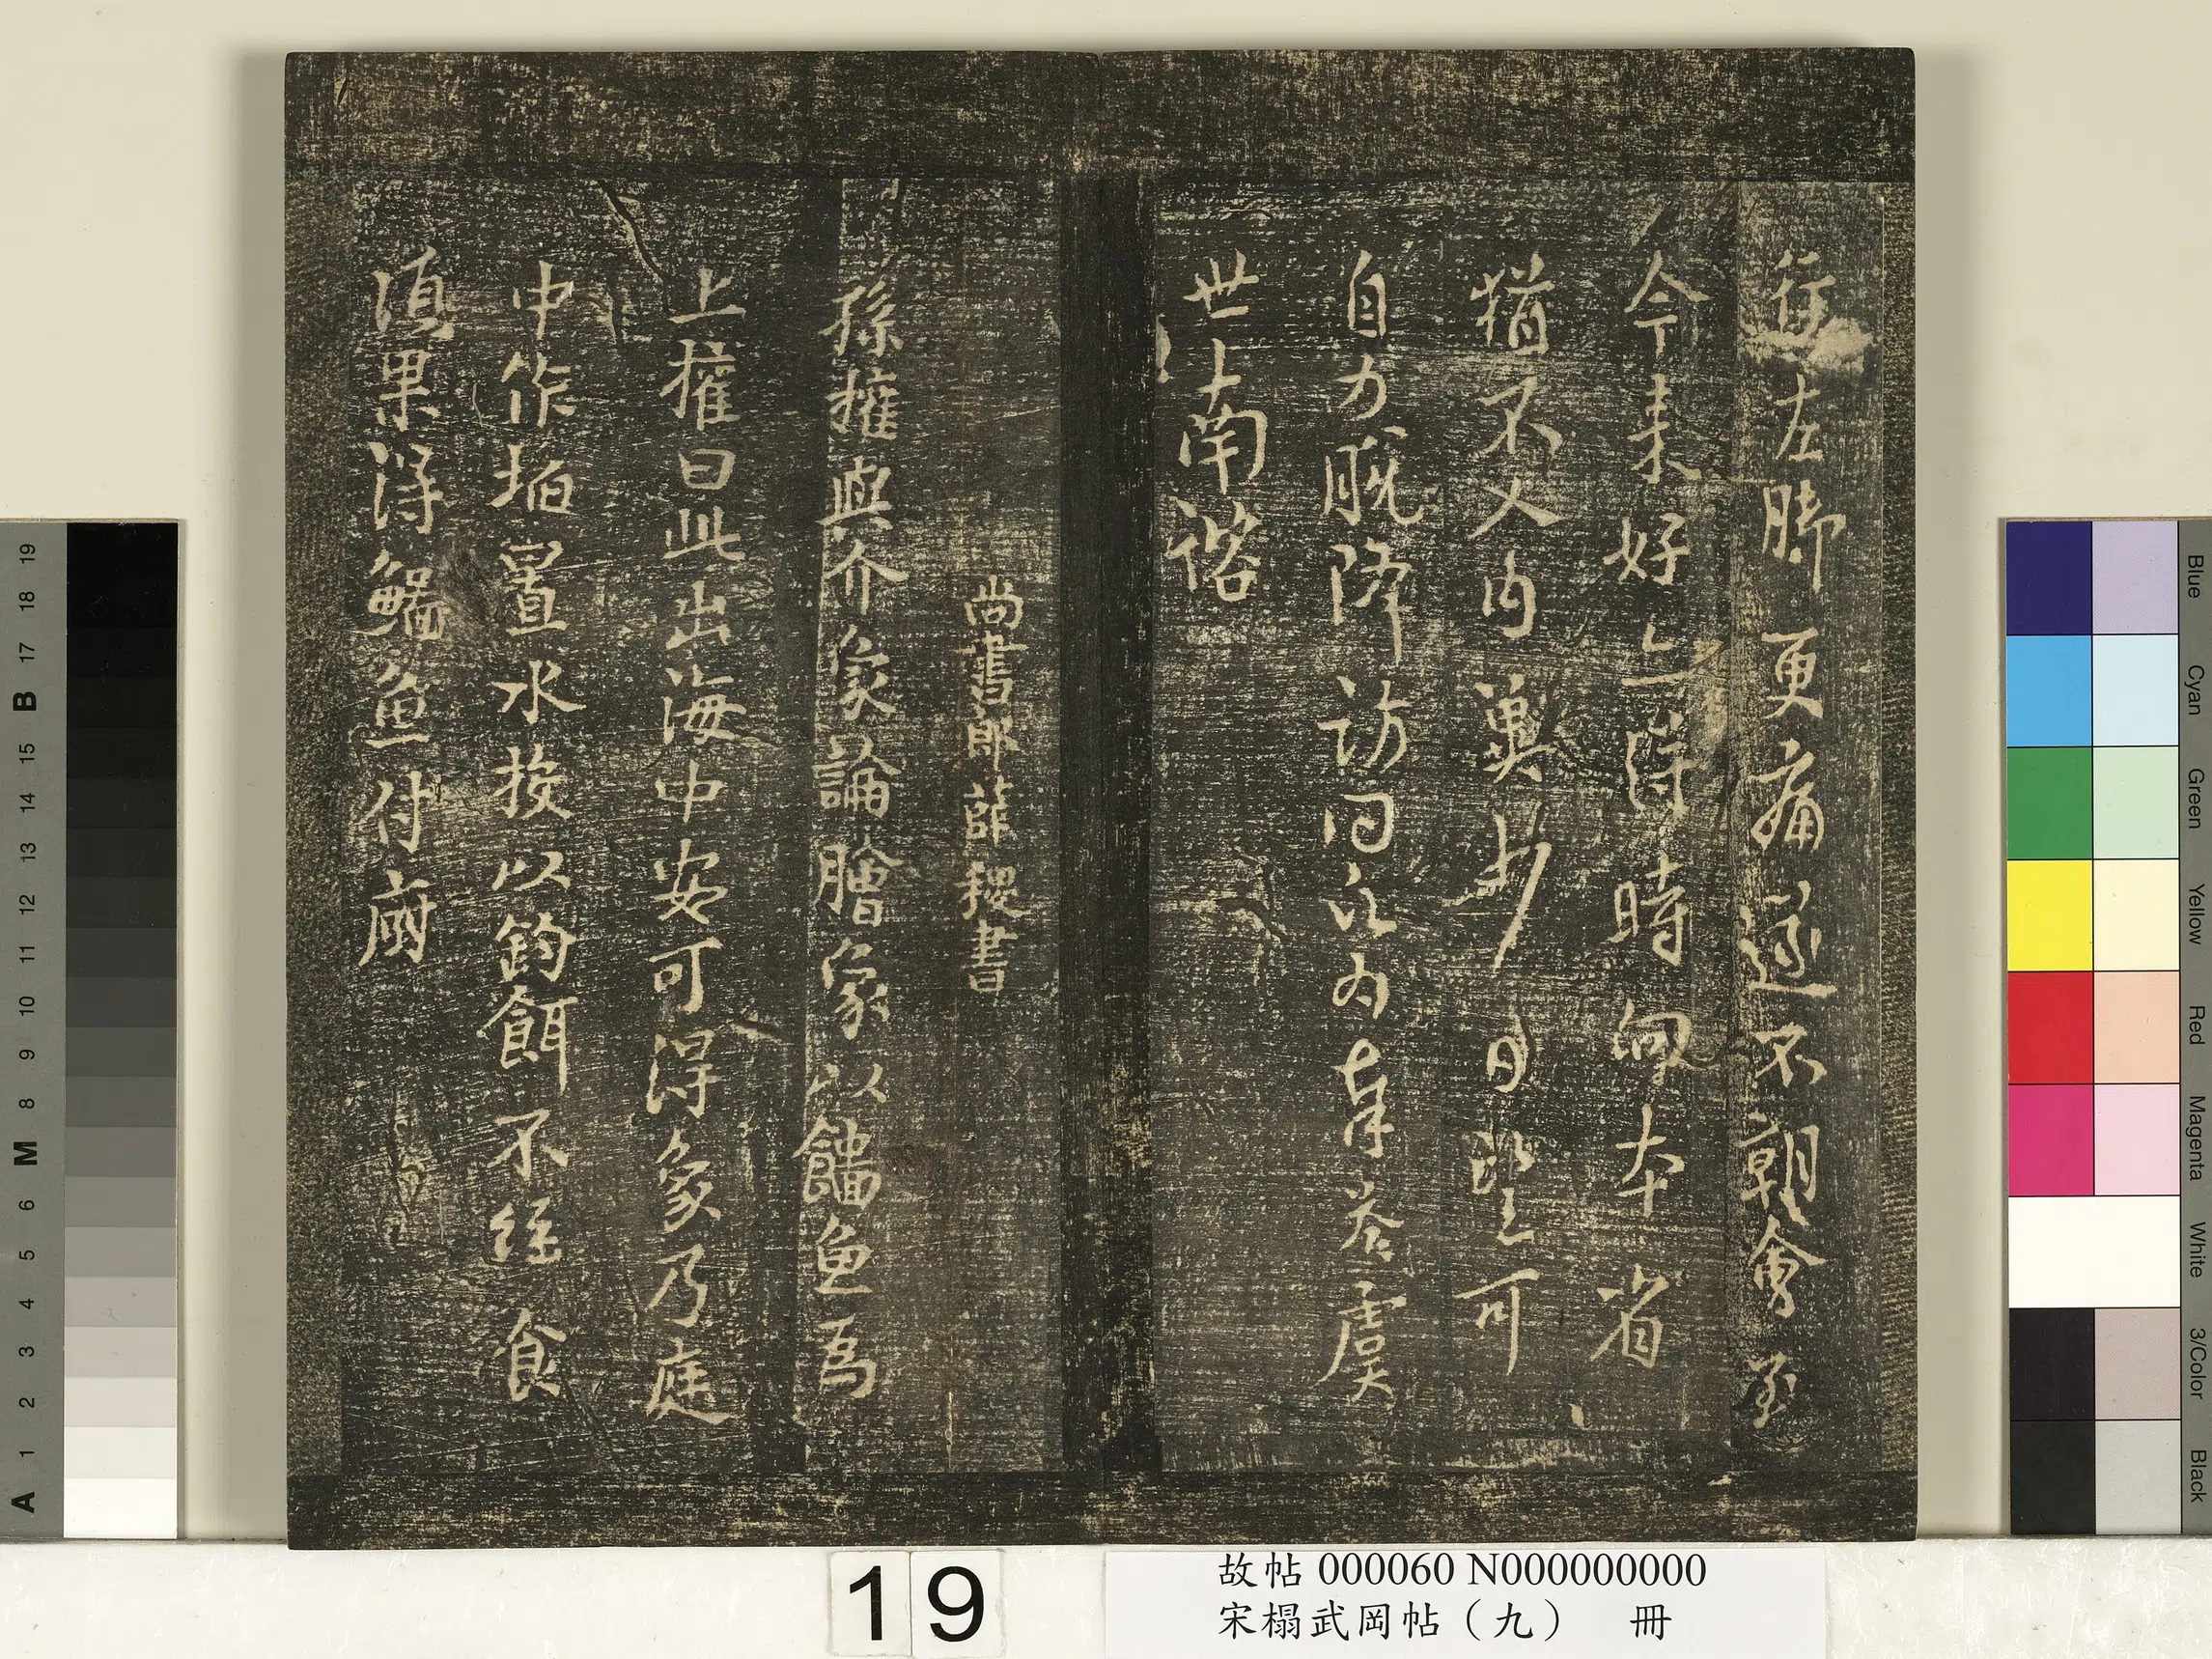 行左脚更痛遂不朝會至
今未好亦得時向本省
猶不入内冀少日望可
自力脫降訪問為奉答虞
世南諮
尚書郎薛稷書
孫權與介象論膾象以鯔魚為
上權曰此出海中安可得象乃庭
中作埳置水投以鈎餌不經食
湏果得鯔魚付廚
19
故帖 000060 N000000000
宋榻武岡帖（九） 冊
19 18 17 B 15 14 13 12 11 10 9 8 M 6 5 4 3 2 1 A
Blue Cyan Green Yellow Red Magenta White 3/Color Black